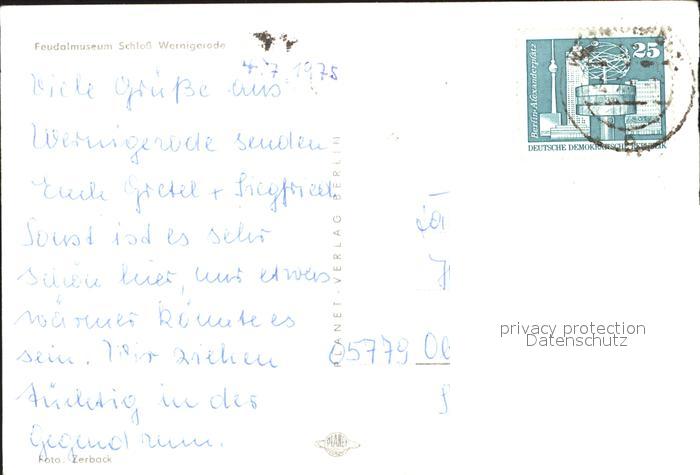 Feudalmuseum Schloß Wernigerode
4.7.1975
Viele Grüße aus
Wernigerode senden
Euch Gretel + Siegfried.
Sonst ist es sehr
schön hier, nur etwas
wärmer könnte es
sein. Wir ziehen
tüchtig in der
Gegend rum.
Foto: Zerback
PLANET-VERLAG BERLIN
PLANET
25
Berlin-Alexanderplatz
DEUTSCHE DEMOKRATISCHE REPUBLIK
05779
privacy protection
Datenschutz